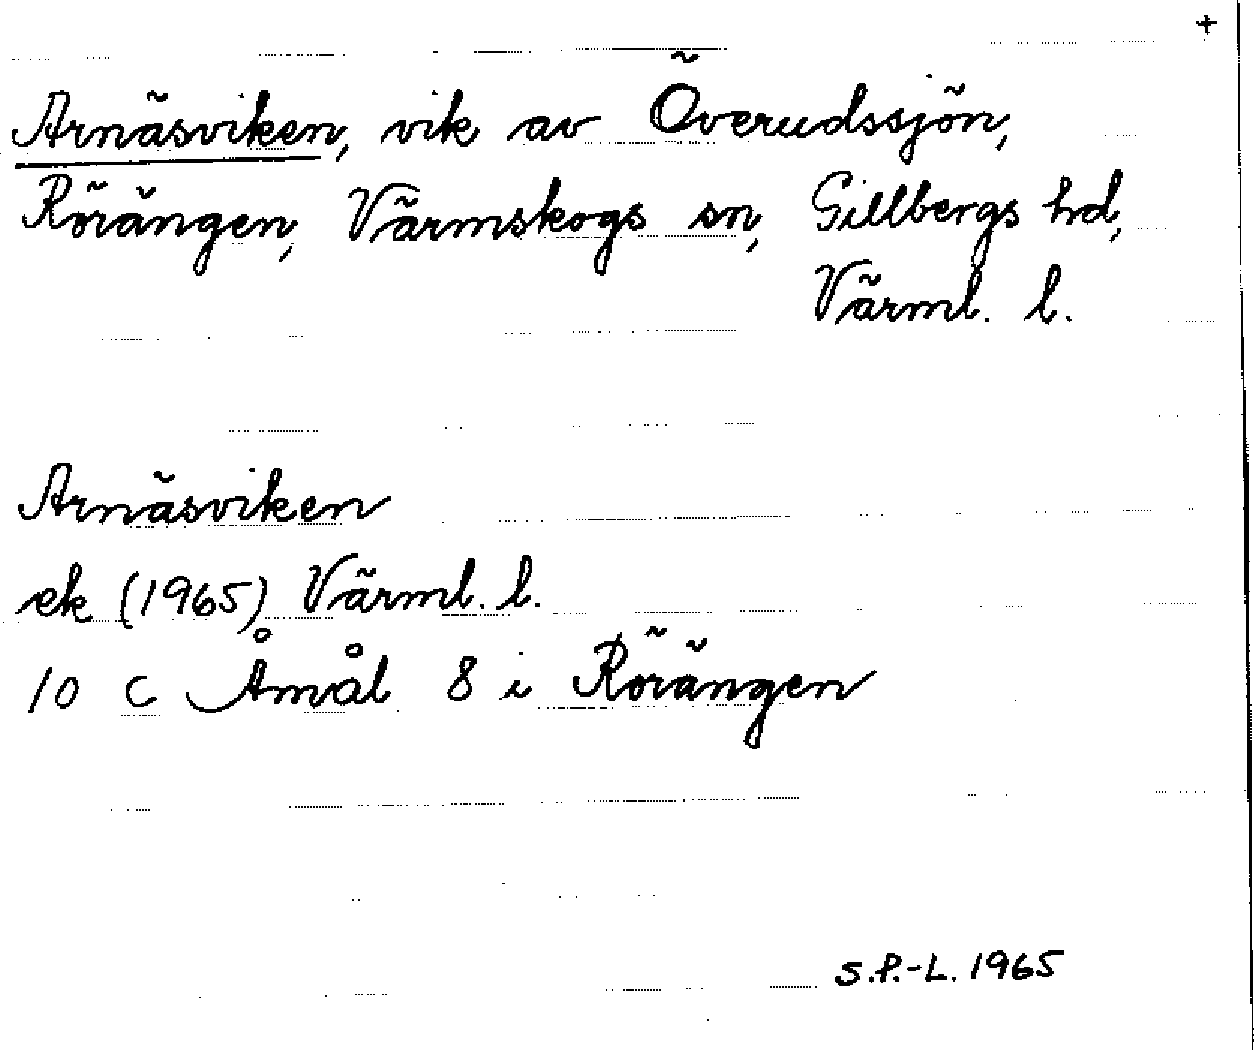 +
Arnäsviken, vik av Överudssjön,
Rörängen, Värmskogs sn, Gillbergs hd,
Värml. l.
Arnäsviken
ek (1965) Värml. l.
10 C Åmål 8 i Rörängen
S.P.-L. 1965